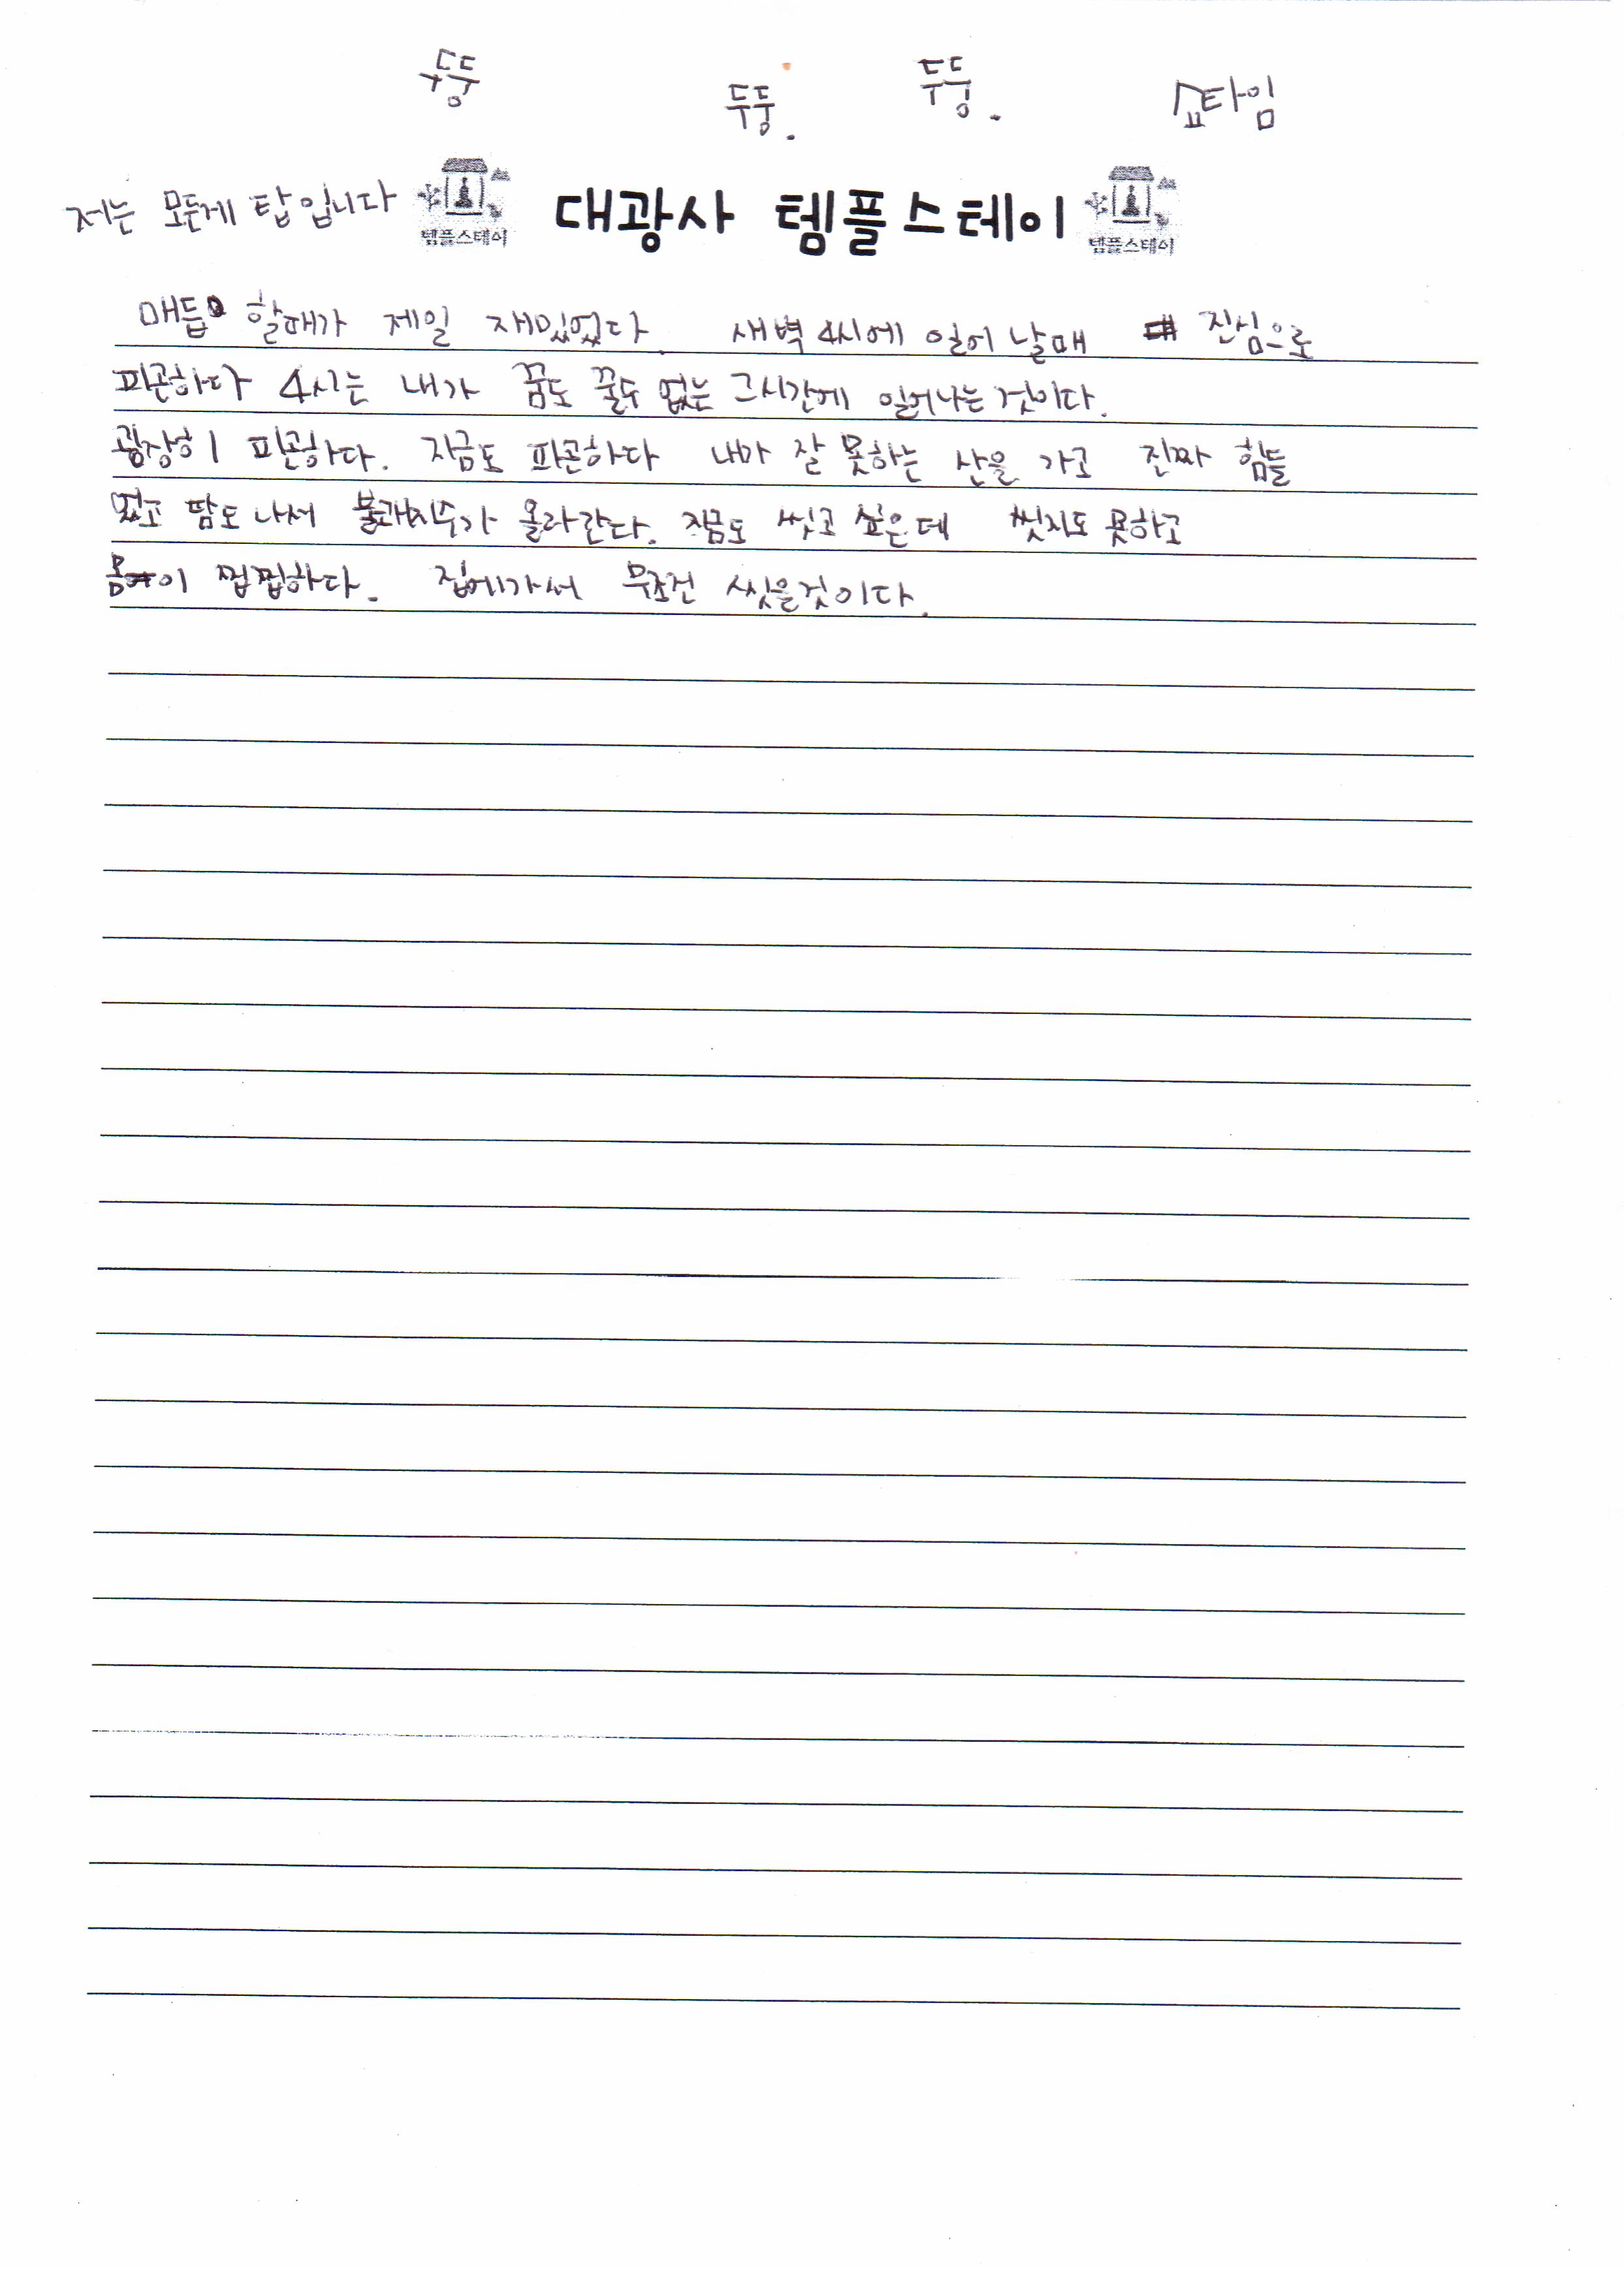 두둥 두둥. 두둥. 쇼타임
저는 모든게 탑입니다 템플스테이 대광사 템플스테이 템플스테이
매듭 할때가 제일 재밌었다. 새벽 4시에 일어날때 진심으로
피곤하다 4시는 내가 꿈도 꿀수 없는 그시간에 일어나는 것이다.
굉장히 피곤하다. 지금도 피곤하다 내마 잘 못하는 산을 가고 진짜 힘들
었고 땀도 나서 불쾌지수가 올라간다. 지금도 씻고 싶은데 씻지도 못하고
몸이 찝찝하다. 집에가서 무조건 씻을것이다.